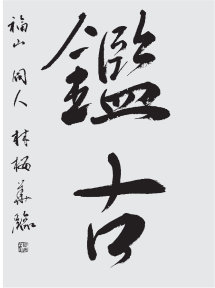 鑑古
福山 同人 林梅華臨